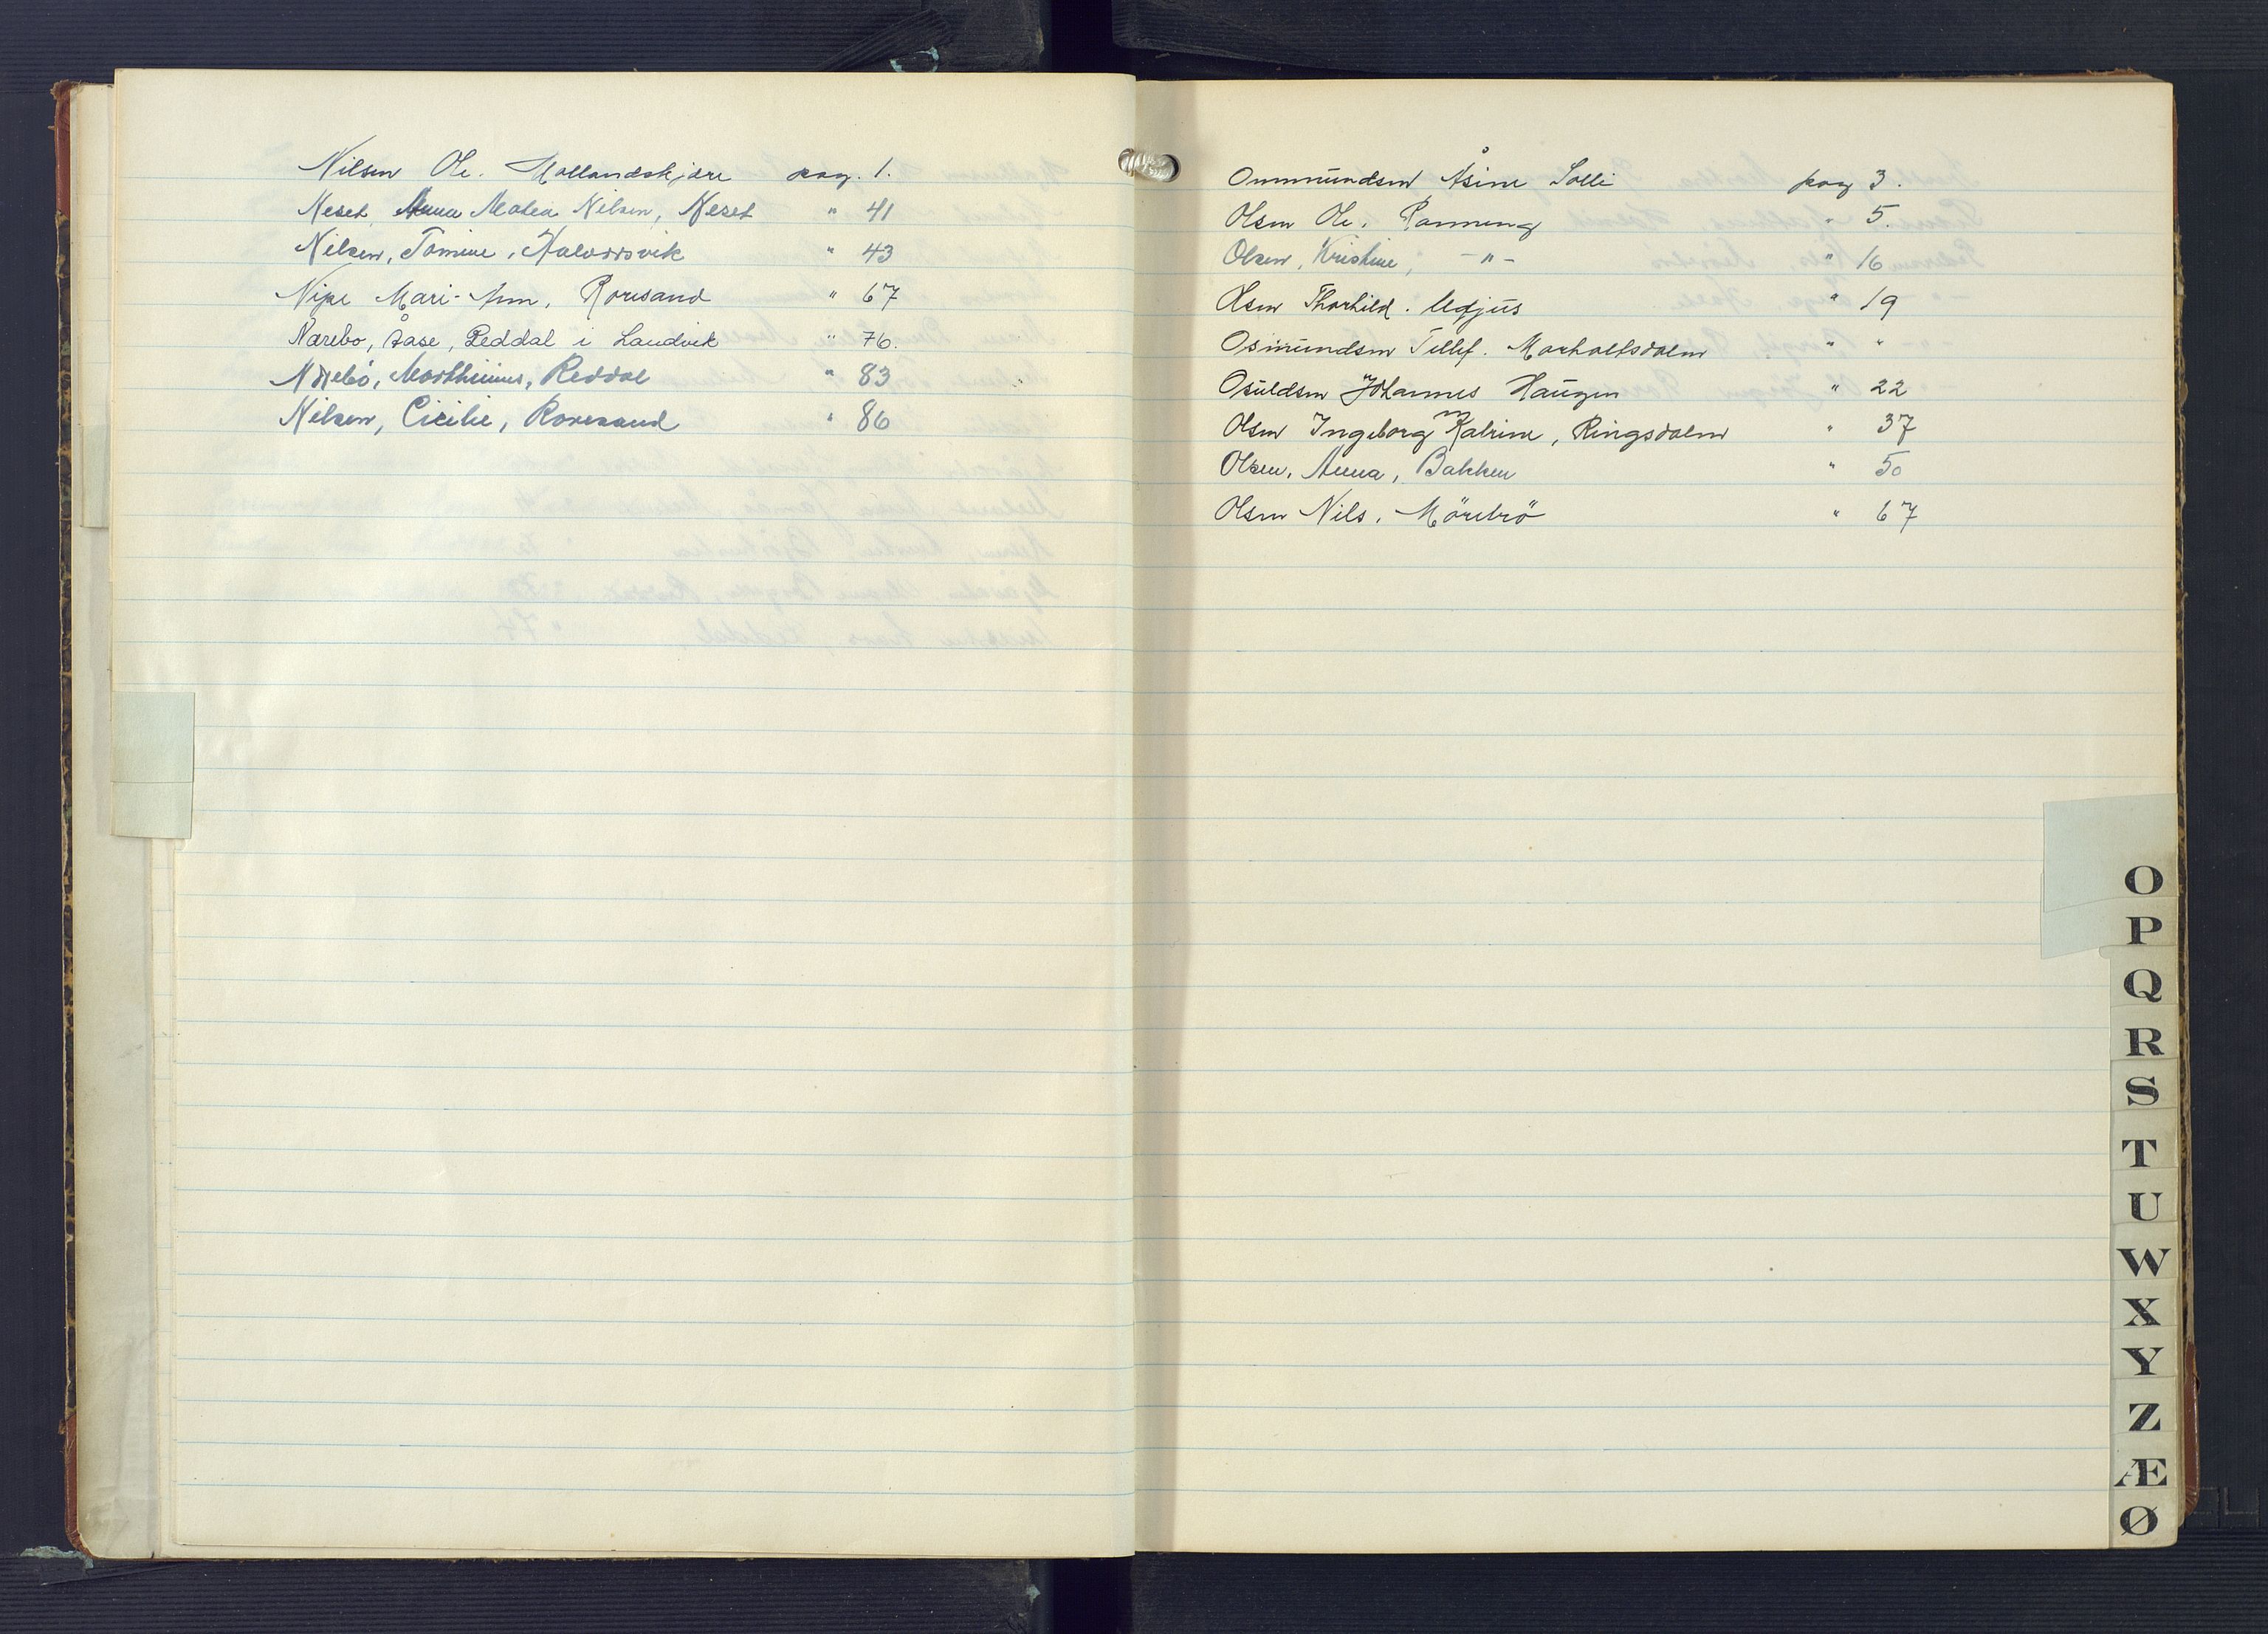 Nilsen Ole. Mollandskjære pag. 1.
Neset, Anna Matea Nilsen, Neset " 41
Nilsen, Tomine, Halvorsvik " 43
Nipe Mari-Ann, Roresand " 67
Nærebø, Åase, Reddal i Landvik " 76.
Nærebö, Marthinius, Reddal " 83
Nilsen, Cicilie, Roresand " 86
Ommundsen Åsine Solli pag 3.
Olsen Ole. Rønning " 5.
Olsen, Kristine, - " - " 16
Olsen Thorhild. Ugjus " 19
Osmundsen Tellef. Morholtsdalen " "
Osuldsen Johannes Haugen " 22
Olsen Ingeborg Katrine, Ringsdalen " 37
Olsen, Anna, Bakken " 50
Olsen Nils. Mörebrö " 67
O
P
Q
R
S
T
U
W
X
Y
Z
Æ
Ø